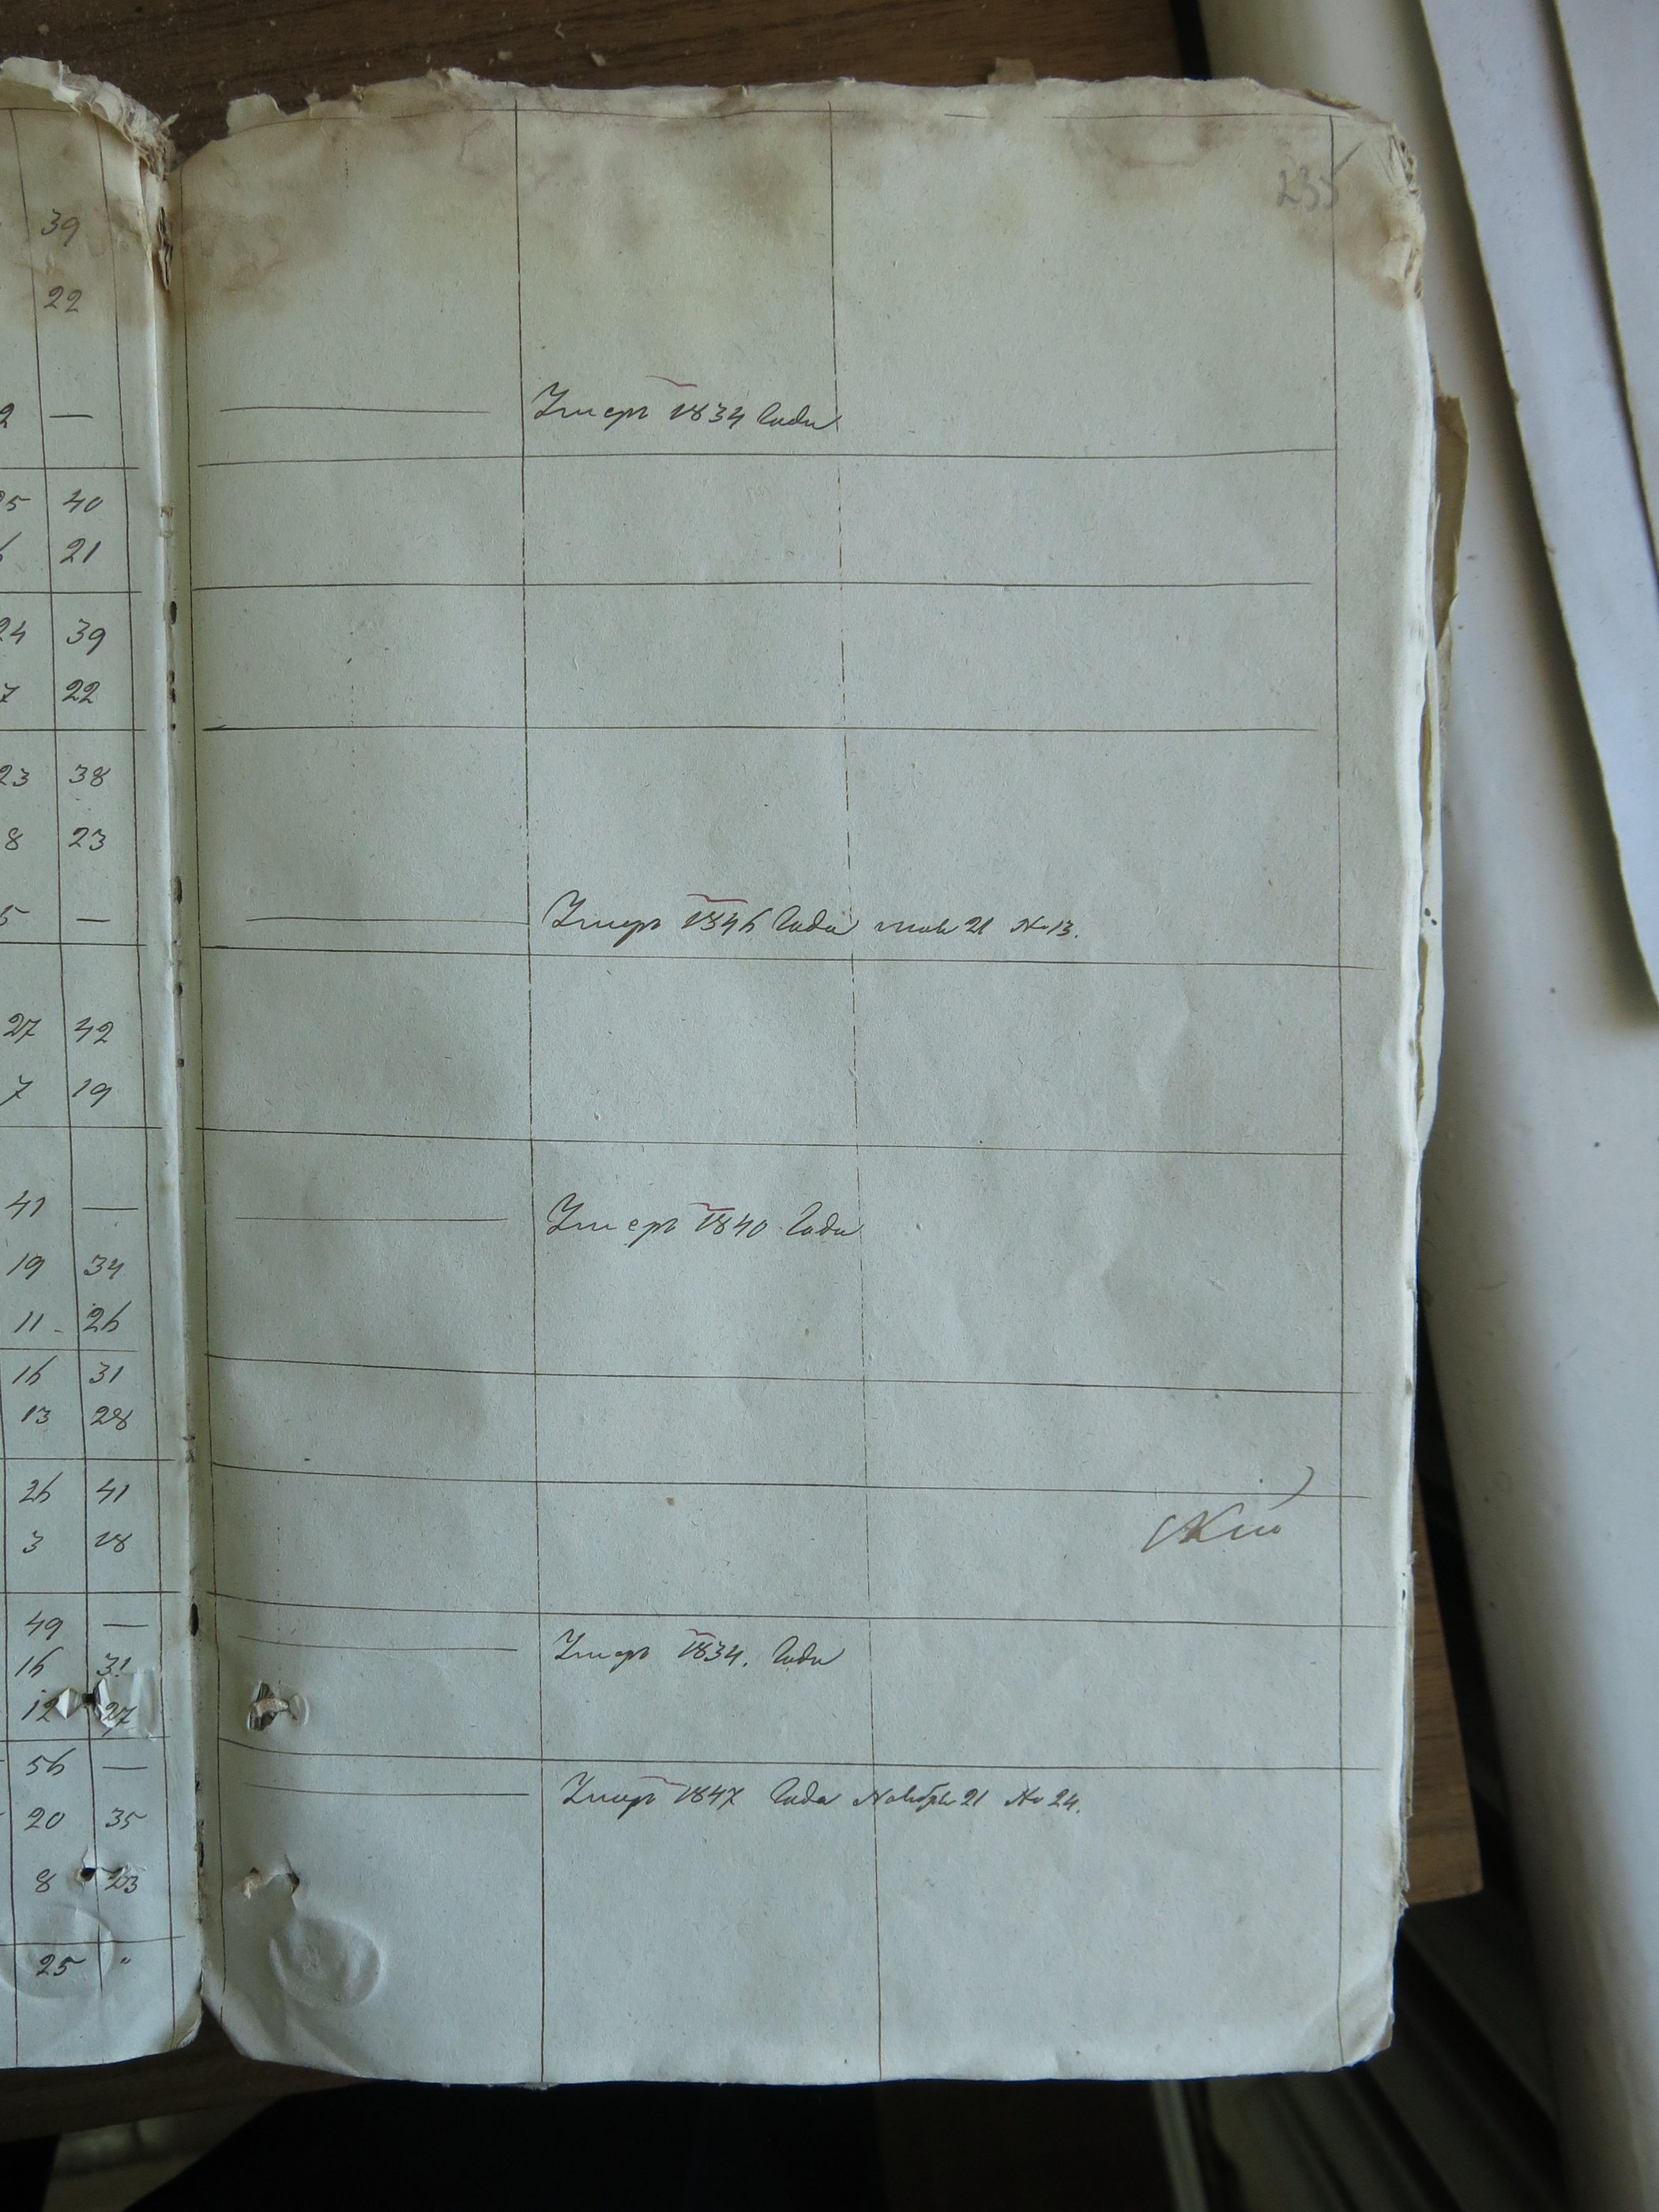 235
39
22
2 —
Умеръ 1834 года
25 40
6 21
24 39
7 22
23 38
8 23
5 —
Умеръ 1846 года 21 № 13.
27 42
7 19
41 —
Умеръ 1840 года
19 34
11 26
16 31
13 28
26 41
кій
3 18
49 —
Умеръ 1834. года
16 31
12 27
56 —
Умеръ 1847 года Ноября 21 № 24.
20 35
8 23
25 "